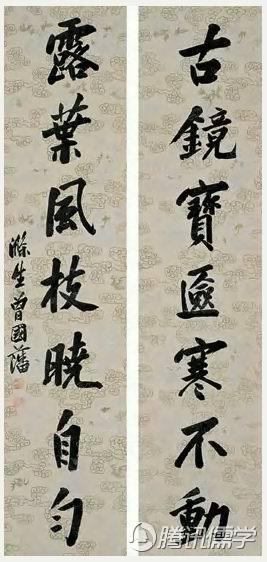 古鏡寶匳寒不動
露葉風枝曉自勻
滌生曾國藩
腾讯儒学